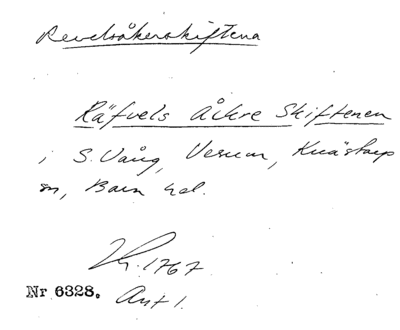 Revelsåkerskiftena
Räfvels Åckre Skiftenen
i S. Vång, Vernum, Knästorp
sn, Bara hd.
Lr. 1767
Nr 6328. Akt 1.